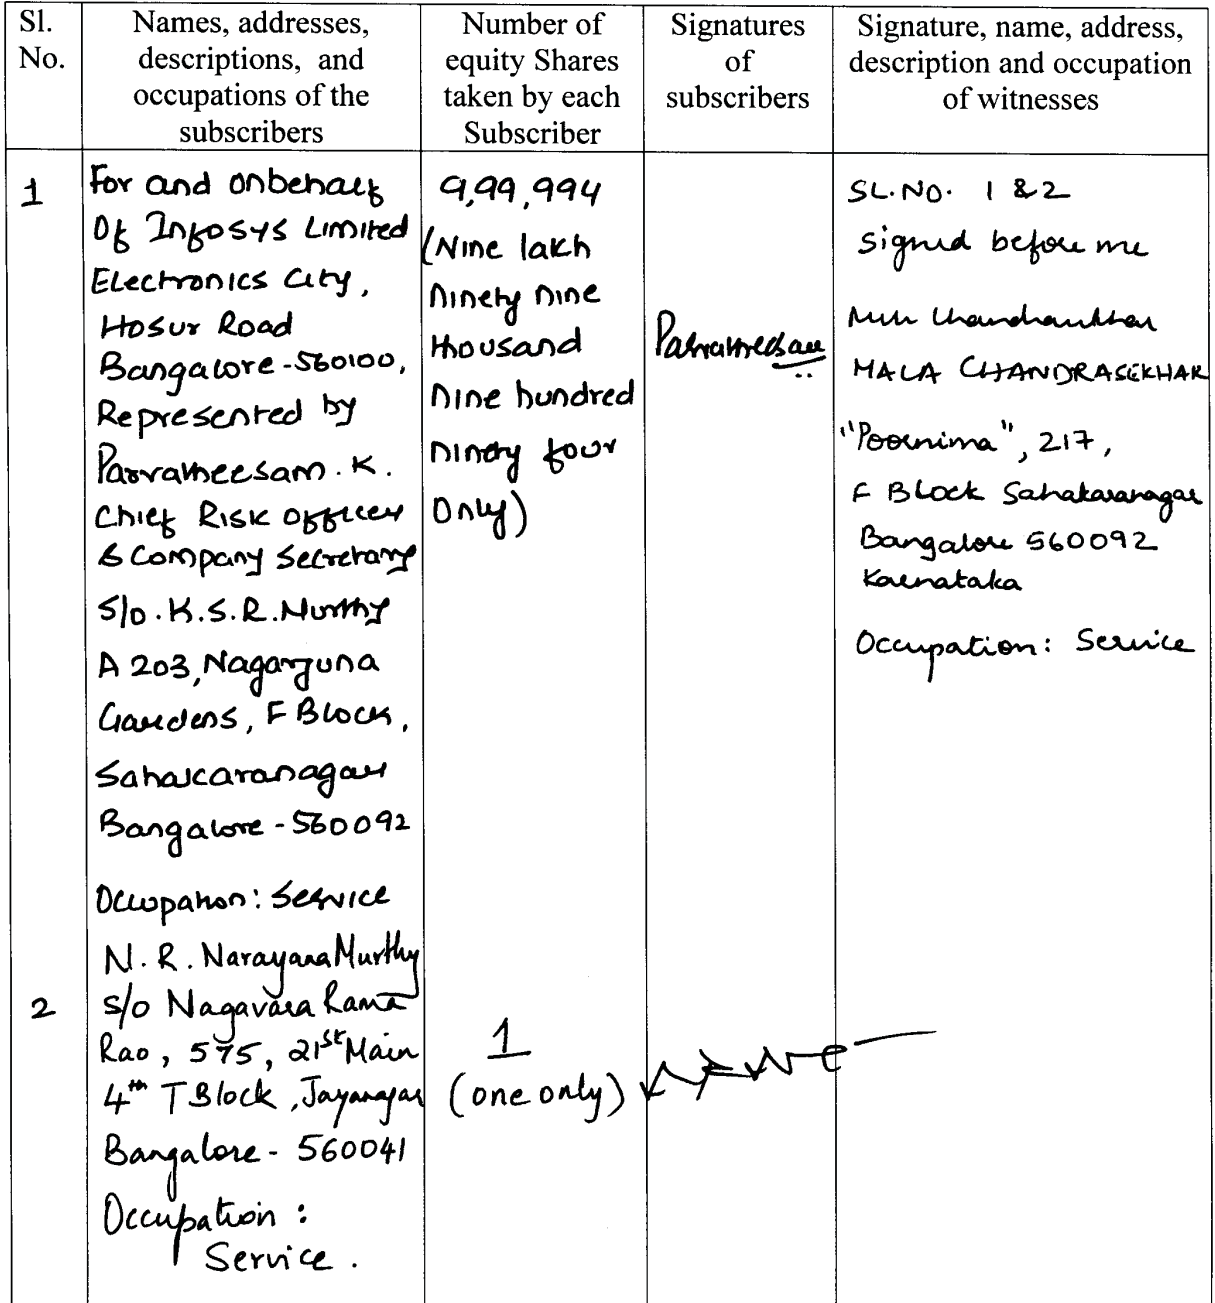 Sl.
No.
Names, addresses,
descriptions, and
occupations of the
subscribers
Number of
equity Shares
taken by each
Subscriber
Signatures
of
subscribers
Signature, name, address,
description and occupation
of witnesses
1
For and onbehalf
Of Infosys Limited
Electronics City,
Hosur Road
Bangalore - 560100,
Represented by
Parvatheesam. K.
Chief Risk officer
& Company Secretary
S/o. K.S.R. Murthy
A 203, Nagarjuna
Gardens, F Block,
Sahakaranagar
Bangalore - 560092
Occupation: Service
9,99,994
(Nine lakh
ninety nine
thousand
nine hundred
ninety four
Only)
Parvatheesam
SL.NO. 1 & 2
Signed before me
MALA CHANDRASEKHAR
"Poornima", 217,
F Block Sahakaranagar
Bangalore 560092
Karnataka
Occupation: Service
2
N. R. Narayana Murthy
s/o Nagavara Rama
Rao, 575, 21st Main
4th T Block, Jayanagar
Bangalore - 560041
Occupation :
Service .
1
(one only)